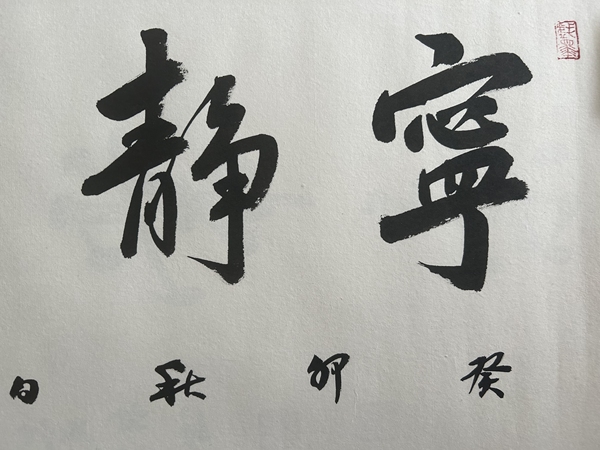 寧静
癸卯秋日